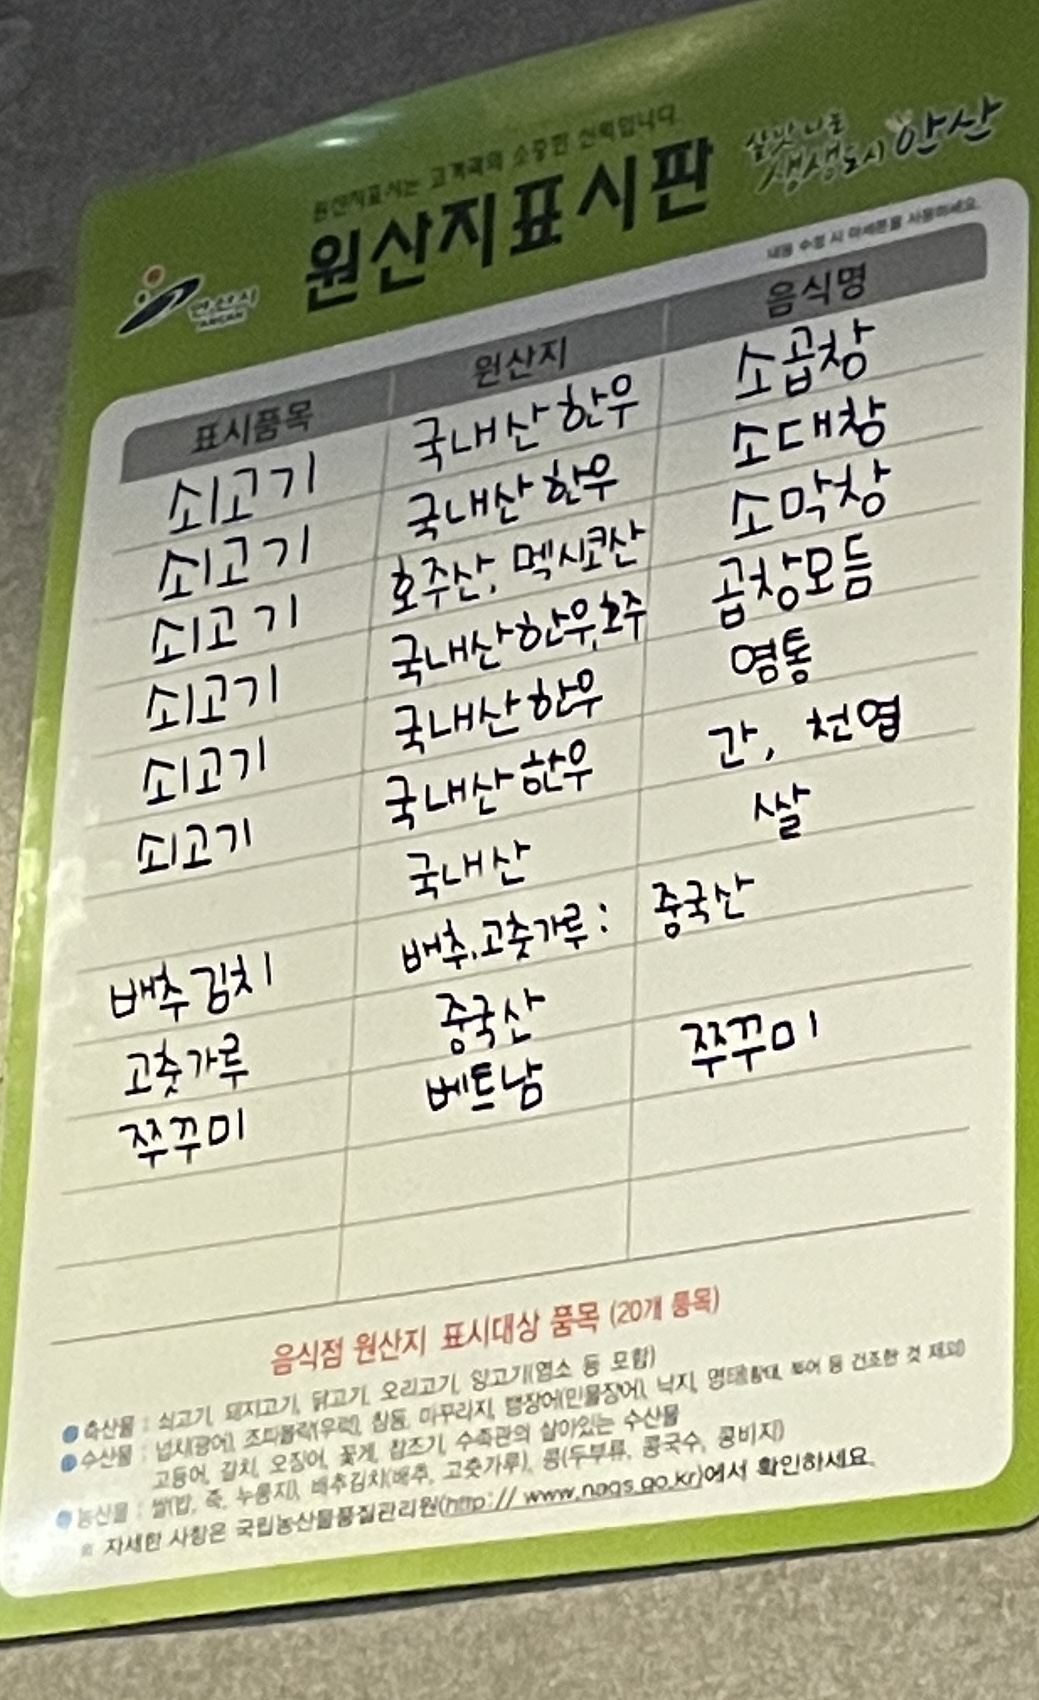 원산지표시는 고객과의 소중한 신뢰입니다.
원산지표시판
살맛나는
생생도시 안산
안산시
ANSAN
내용 수정 시 아세톤을 사용하세요.
표시품목 원산지 음식명
쇠고기 국내산 한우 소곱창
쇠고기 국내산 한우 소대창
쇠고기 호주산, 멕시코산 소막창
쇠고기 국내산 한우, 호주 곱창모듬
쇠고기 국내산 한우 염통
쇠고기 국내산 한우 간, 천엽
국내산 쌀
배추김치 배추,고춧가루: 중국산
고춧가루 중국산
쭈꾸미 베트남 쭈꾸미
음식점 원산지 표시대상 품목 (20개 품목)
축산물 : 쇠고기, 돼지고기, 닭고기, 오리고기, 양고기(염소 등 포함)
수산물 : 넙치(광어), 조피볼락(우럭), 참돔, 미꾸라지, 뱀장어(민물장어), 낙지, 명태(황태, 북어 등 건조한 것 제외)
고등어, 갈치, 오징어, 꽃게, 참조기, 수족관의 살아있는 수산물
농산물 : 쌀(밥, 죽, 누룽지), 배추김치(배추, 고춧가루), 콩(두부류, 콩국수, 콩비지)
※ 자세한 사항은 국립농산물품질관리원(http://www.naqs.go.kr)에서 확인하세요.